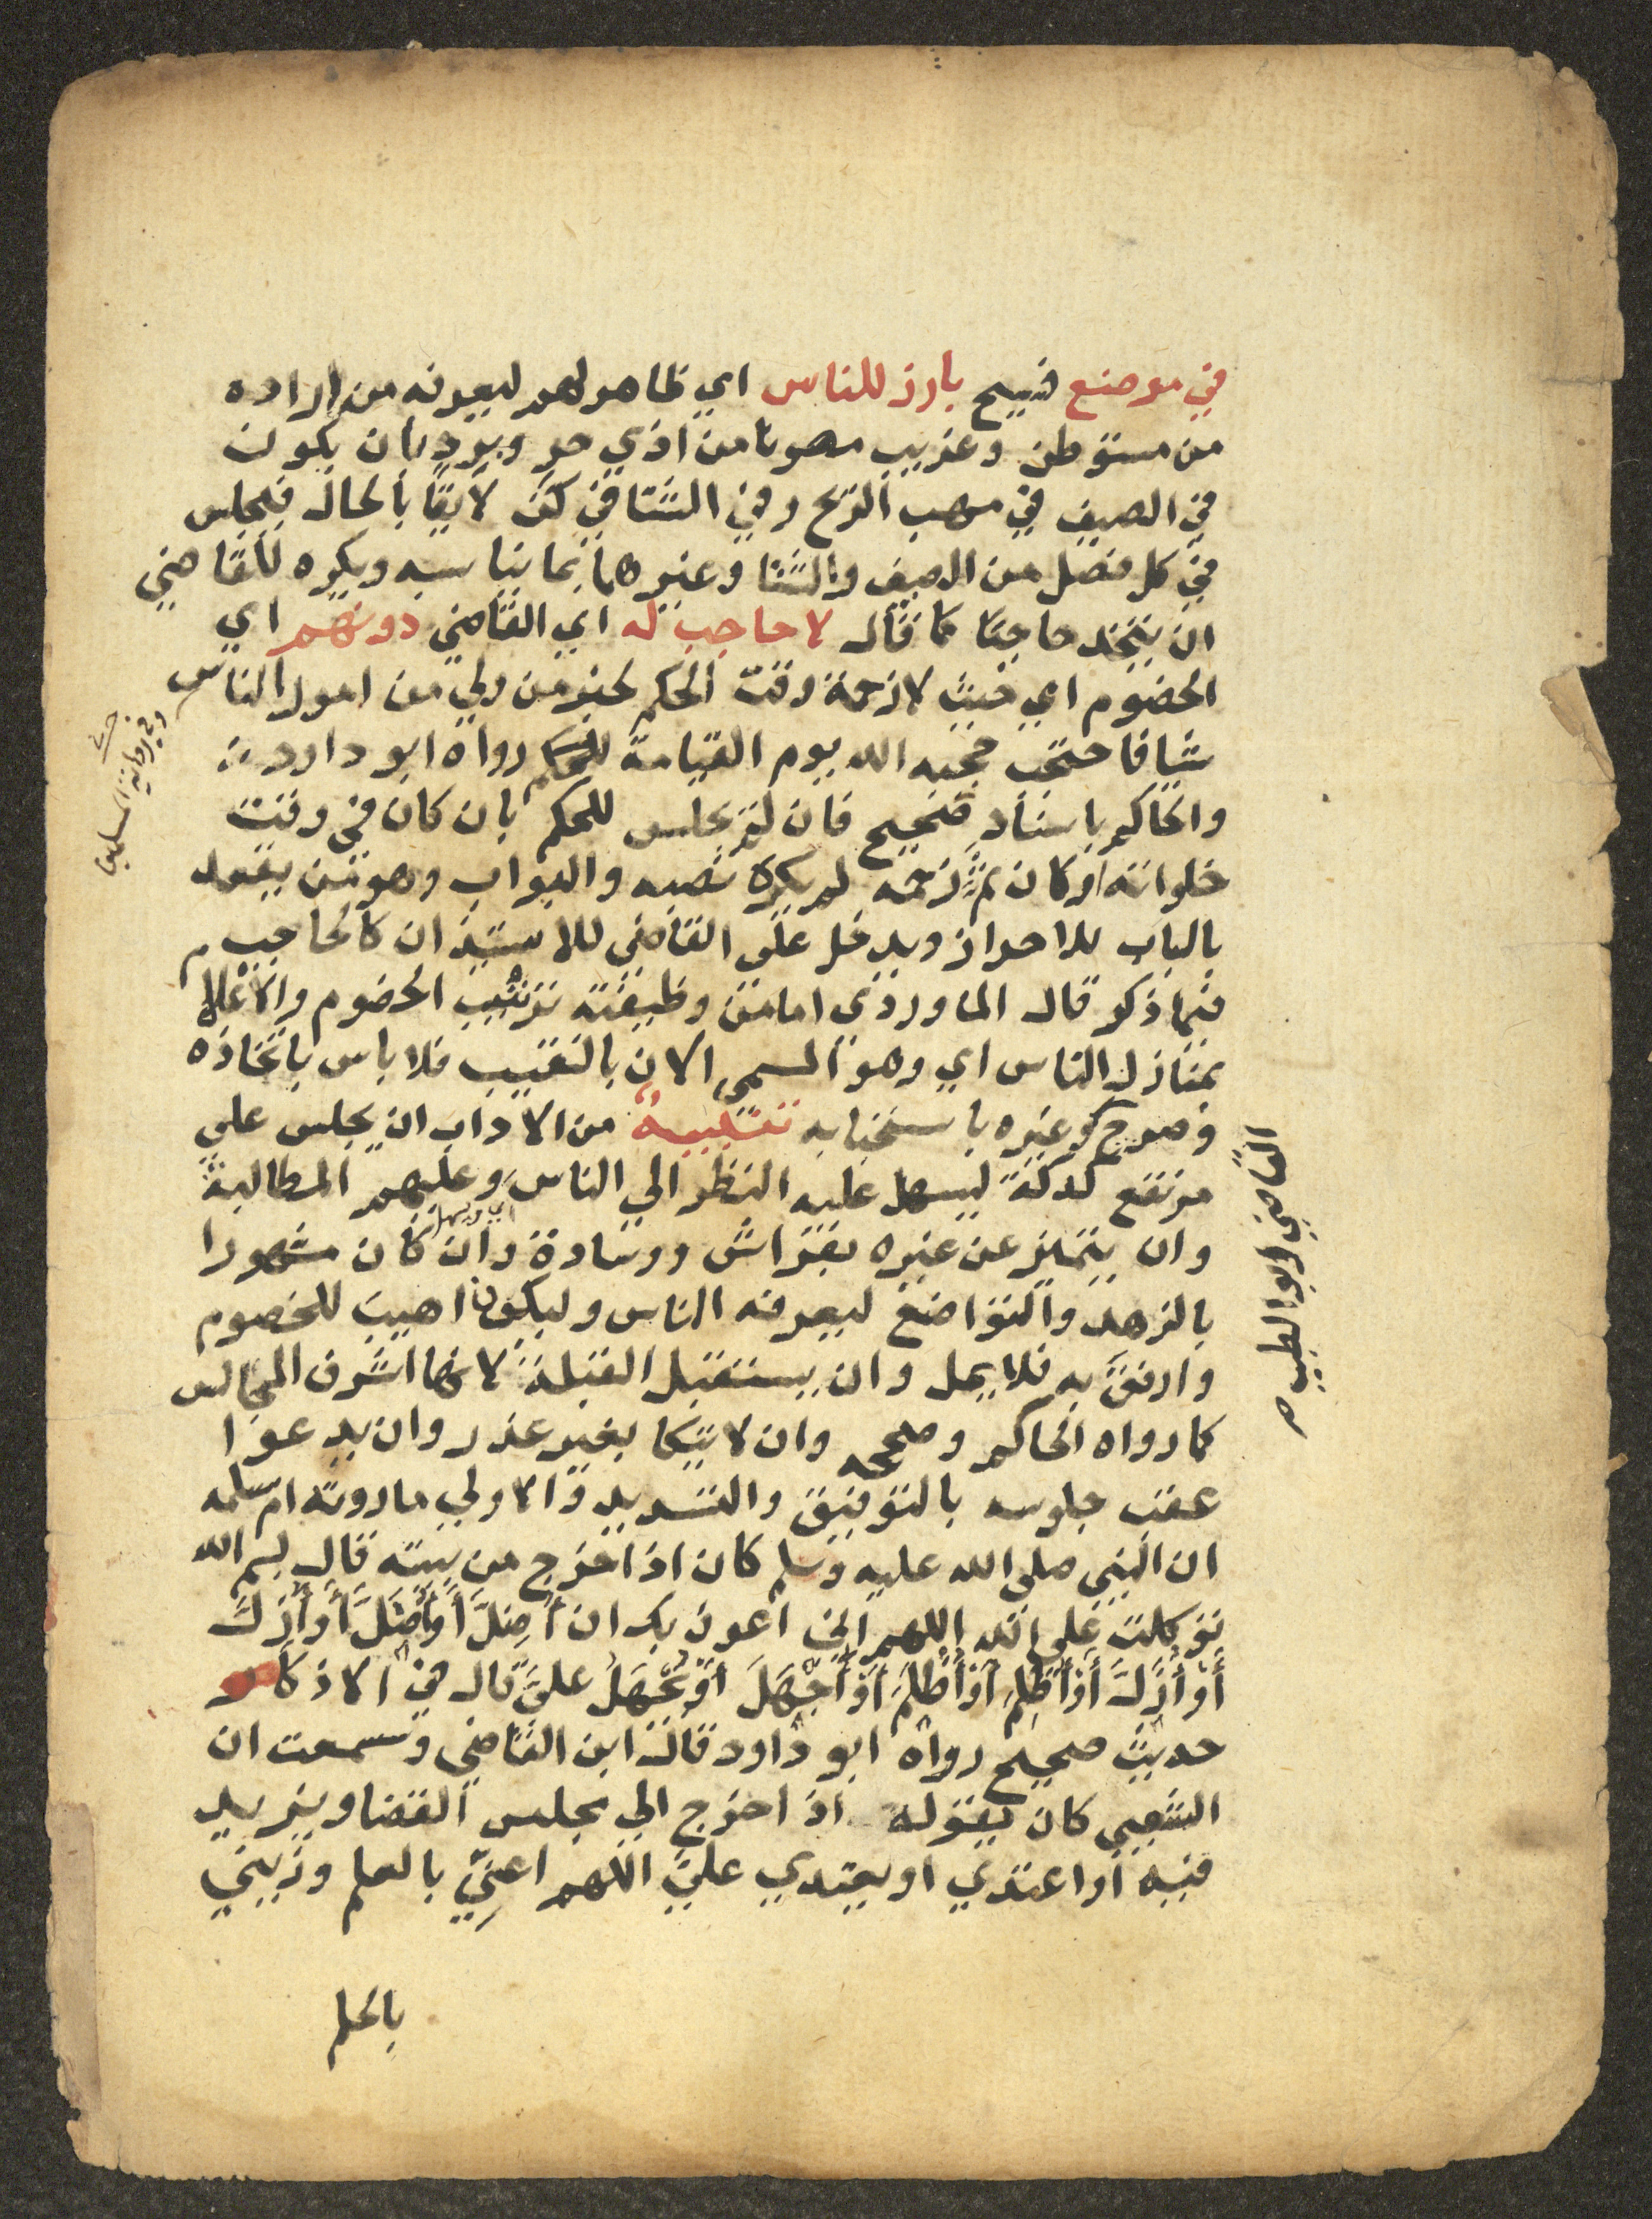 في موضع فسيح بارز للناس اي ظاهر لهم ليعرفه من اراده
من مستوطن وغريب مصونا من اذي حر وبرد بان يكون
في الصيف في مهب الريح وفي الشتا في كن لايقا بالحال فيجلس
في كل فصل من الصيف والشتا وغيرهما بما يناسبه ويكره للقاضي
ان يتخذ حاجبا كما قال لا حاجب له اي القاضي دونهم اي
الخصوم اي حيث لا زحمة وقت الحكم لخبر من ولي من امور الناس
شيا فاحتجب حجبه الله يوم القيامة رواه ابو داود
والحاكم باسناد صحيح فان لم يجلس للحكم بان كان في وقت
خلواته او كان ثم زحمه لم يكره نصبه والبواب وهو من يقعد
بالباب للاحراز ويدخل على القاضي للاستيذان كالحاجب
فيما ذكر قال الماوردي اما من وظيفته ترتيب الخصوم والاعلام
بمنازل الناس اي وهو المسمى الان بالنقيب فلا باس باتخاذه
وصرح غيره باستحبابه تنبيه من الاداب ان يجلس علي
مرتفع كدكة ليسهل عليه النظر الي الناس وعليهم المطالبة
وان يتميز عن غيره بفراش ووسادة وان كان مشهورا
بالزهد والتواضع ليعرفه الناس وليكون اهيب للخصوم
وارفق به فلا يمل وان يستقبل القبلة لانها اشرف المجالس
كما رواه الحاكم وصححه وان لا يتكا بغير عذر وان يدعوا
عقب جلوسه بالتوفيق والتسديد والاولي ما روته ام سلمه
ان النبي صلى الله عليه وسلم كان اذا خرج من بيته قال بسم الله
توكلت على الله اللهم اني اعوذ بك ان أَضِلَّ أو أُضَلَّ أو أَزِلَّ
أَوْ أُزَلَّ أَوْ أَظْلِمَ أَوْ أُظْلَمَ أَوْ أَجْهَلَ أَوْ يُجْهَلَ عليَّ قال في الاذكار
حديث صحيح رواه ابو داود قال ابن القاضي وسمعت ان
الشعبي كان يقوله اذا خرج الي مجلس القضا ويزيد
فيه او اعتدي او يعتدي علي اللهم اعني بالعلم وزيني
بالحلم
القاضي ابو الطيب
وفي رواية المسلمين